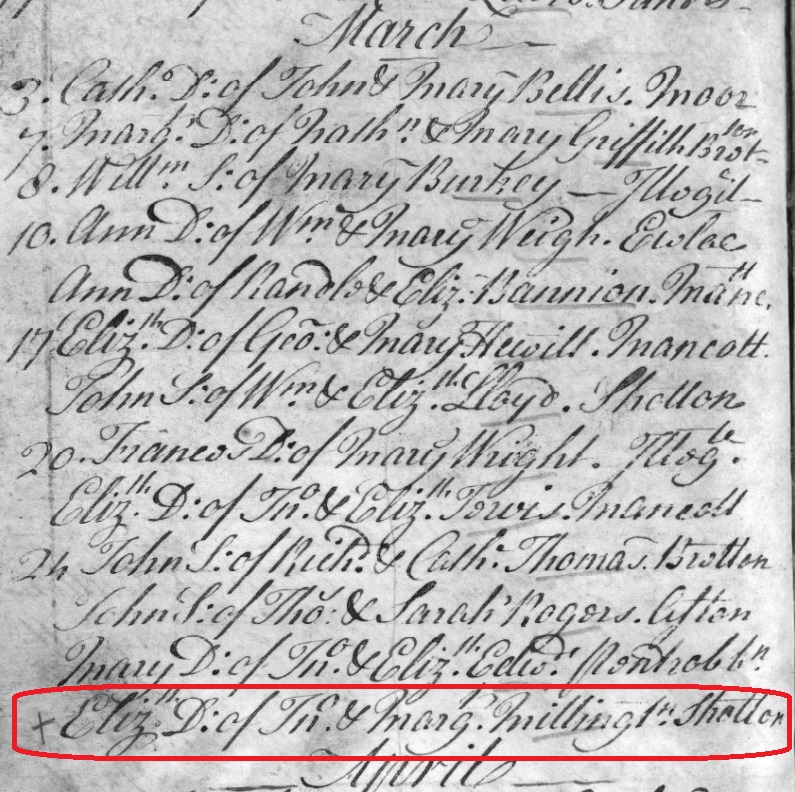 March
3. Cath:e D: of John & Mary Bellis. Moor
7. Marg:t D: of Nath:ll & Mary Griffith Brot-ton
8. Will:m S: of Mary Burkey — Flogil
10. Ann D: of W:m & Mary Weigh. Ewloe
Ann D: of Randle & Eliz: Bannion. Manc.tt
17 Eliz:th D: of Geo: & Mary Hewitt. Mancott.
John S: of W:m & Eliz:th Lloyd. Shotton
20. Frances D: of Mary Wright.
Eliz:th D: of Jn:o & Eliz:th Mancott
24 John S: of Rich:d & Cath:e Thomas. Brotton
John S: of Tho: & Sarah Rogers. Afton
Mary D: of Jn:o & Eliz:th Edw:ds Pentrob:n
+ Eliz:th D: of Jn:o & Marg:t Millingt:n Shotton
April